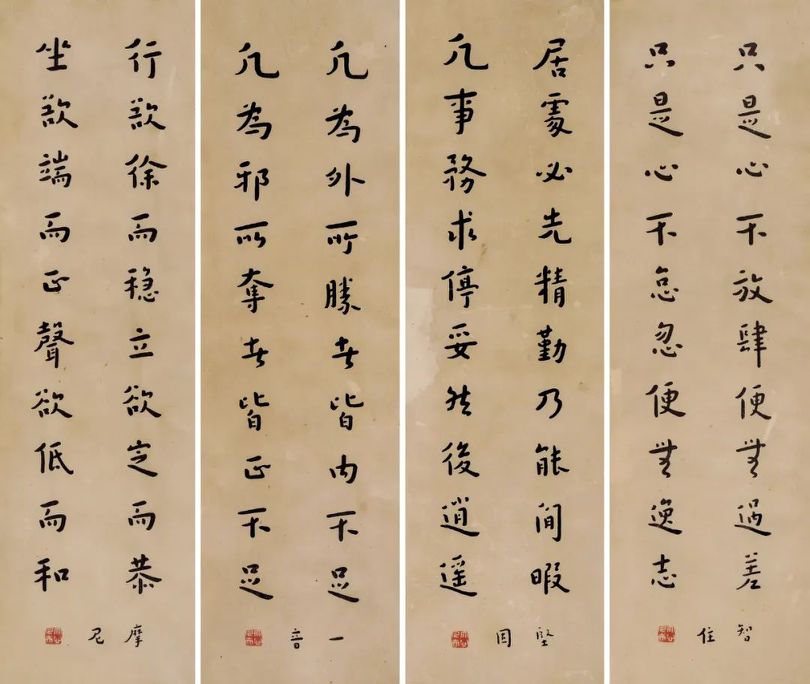 只是心不放肆便無過差
只是心不怠忽便無逸志
智住
居處必先精勤乃能間暇
凡事務求停妥然後逍遥
堅固
凡為外所勝者皆内不足
凡為邪所奪者皆正不足
一音
行欲徐而穩立欲定而恭
坐欲端而正聲欲低而和
摩尼